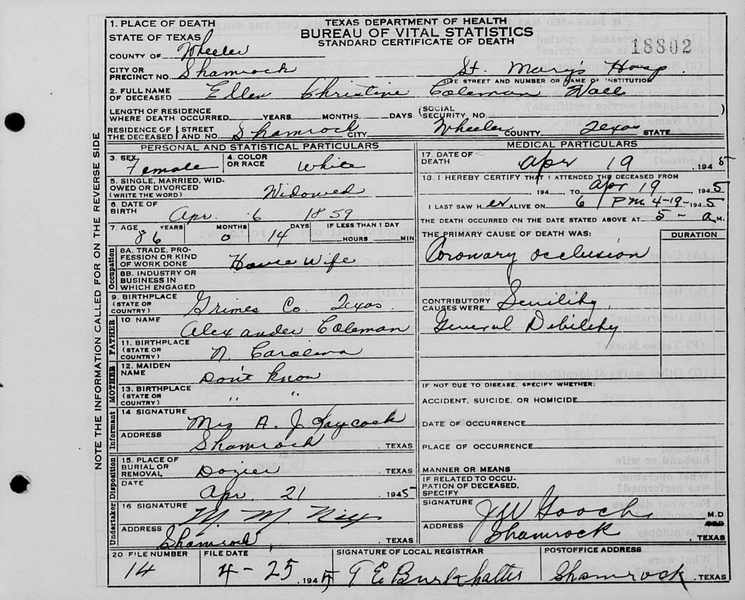 TEXAS DEPARTMENT OF HEALTH
BUREAU OF VITAL STATISTICS
STANDARD CERTIFICATE OF DEATH
18802
NOTE THE INFORMATION CALLED FOR ON THE REVERSE SIDE
1. PLACE OF DEATH
STATE OF TEXAS
COUNTY OF Wheeler
CITY OR PRECINCT NO. Shamrock St. Mary's Hosp.
GIVE STREET AND NUMBER OR NAME OF INSTITUTION
2. FULL NAME OF DECEASED Ellen Christine Coleman Wall
LENGTH OF RESIDENCE WHERE DEATH OCCURRED YEARS MONTHS DAYS (SOCIAL SECURITY NO.
RESIDENCE OF THE DECEASED STREET AND NO. Shamrock CITY Wheeler COUNTY Texas STATE
PERSONAL AND STATISTICAL PARTICULARS
3. SEX Female 4. COLOR OR RACE White
5. SINGLE, MARRIED, WIDOWED OR DIVORCED (WRITE THE WORD) Widowed
6. DATE OF BIRTH Apr. 6 1859
7. AGE 86 YEARS 0 MONTHS 14 DAYS IF LESS THAN 1 DAY HOURS MIN
Occupation
8A. TRADE, PROFESSION OR KIND OF WORK DONE House Wife
8B. INDUSTRY OR BUSINESS IN WHICH ENGAGED
9. BIRTHPLACE (STATE OR COUNTRY) Grimes Co. Texas
FATHER
10 NAME Alexander Coleman
11. BIRTHPLACE (STATE OR COUNTRY) N. Carolina
MOTHER
12. MAIDEN NAME Don't Know
13. BIRTHPLACE (STATE OR COUNTRY) " "
Informant
14 SIGNATURE Mrs A. J. Laycock
ADDRESS Shamrock, TEXAS
Disposition
15. PLACE OF BURIAL OR REMOVAL Dozier TEXAS
DATE Apr. 21 1945
Undertaker
16 SIGNATURE M. M. Nix
ADDRESS Shamrock, TEXAS
MEDICAL PARTICULARS
17. DATE OF DEATH Apr 19 1945
18. I HEREBY CERTIFY THAT I ATTENDED THE DECEASED FROM
194 TO Apr 19 1945
I LAST SAW H er ALIVE ON 6 PM 4-19-1945
THE DEATH OCCURRED ON THE DATE STATED ABOVE AT 5- a M.
THE PRIMARY CAUSE OF DEATH WAS: DURATION
Coronary occlusion
CONTRIBUTORY CAUSES WERE: Senility
General Debility
IF NOT DUE TO DISEASE, SPECIFY WHETHER:
ACCIDENT, SUICIDE, OR HOMICIDE
DATE OF OCCURRENCE
PLACE OF OCCURRENCE
MANNER OR MEANS
IF RELATED TO OCCUPATION OF DECEASED, SPECIFY
SIGNATURE J W Gooch M.D
ADDRESS Shamrock, TEXAS
20 FILE NUMBER 14
FILE DATE 4-25, 1945
SIGNATURE OF LOCAL REGISTRAR T E Burkhalter
POSTOFFICE ADDRESS Shamrock, TEXAS